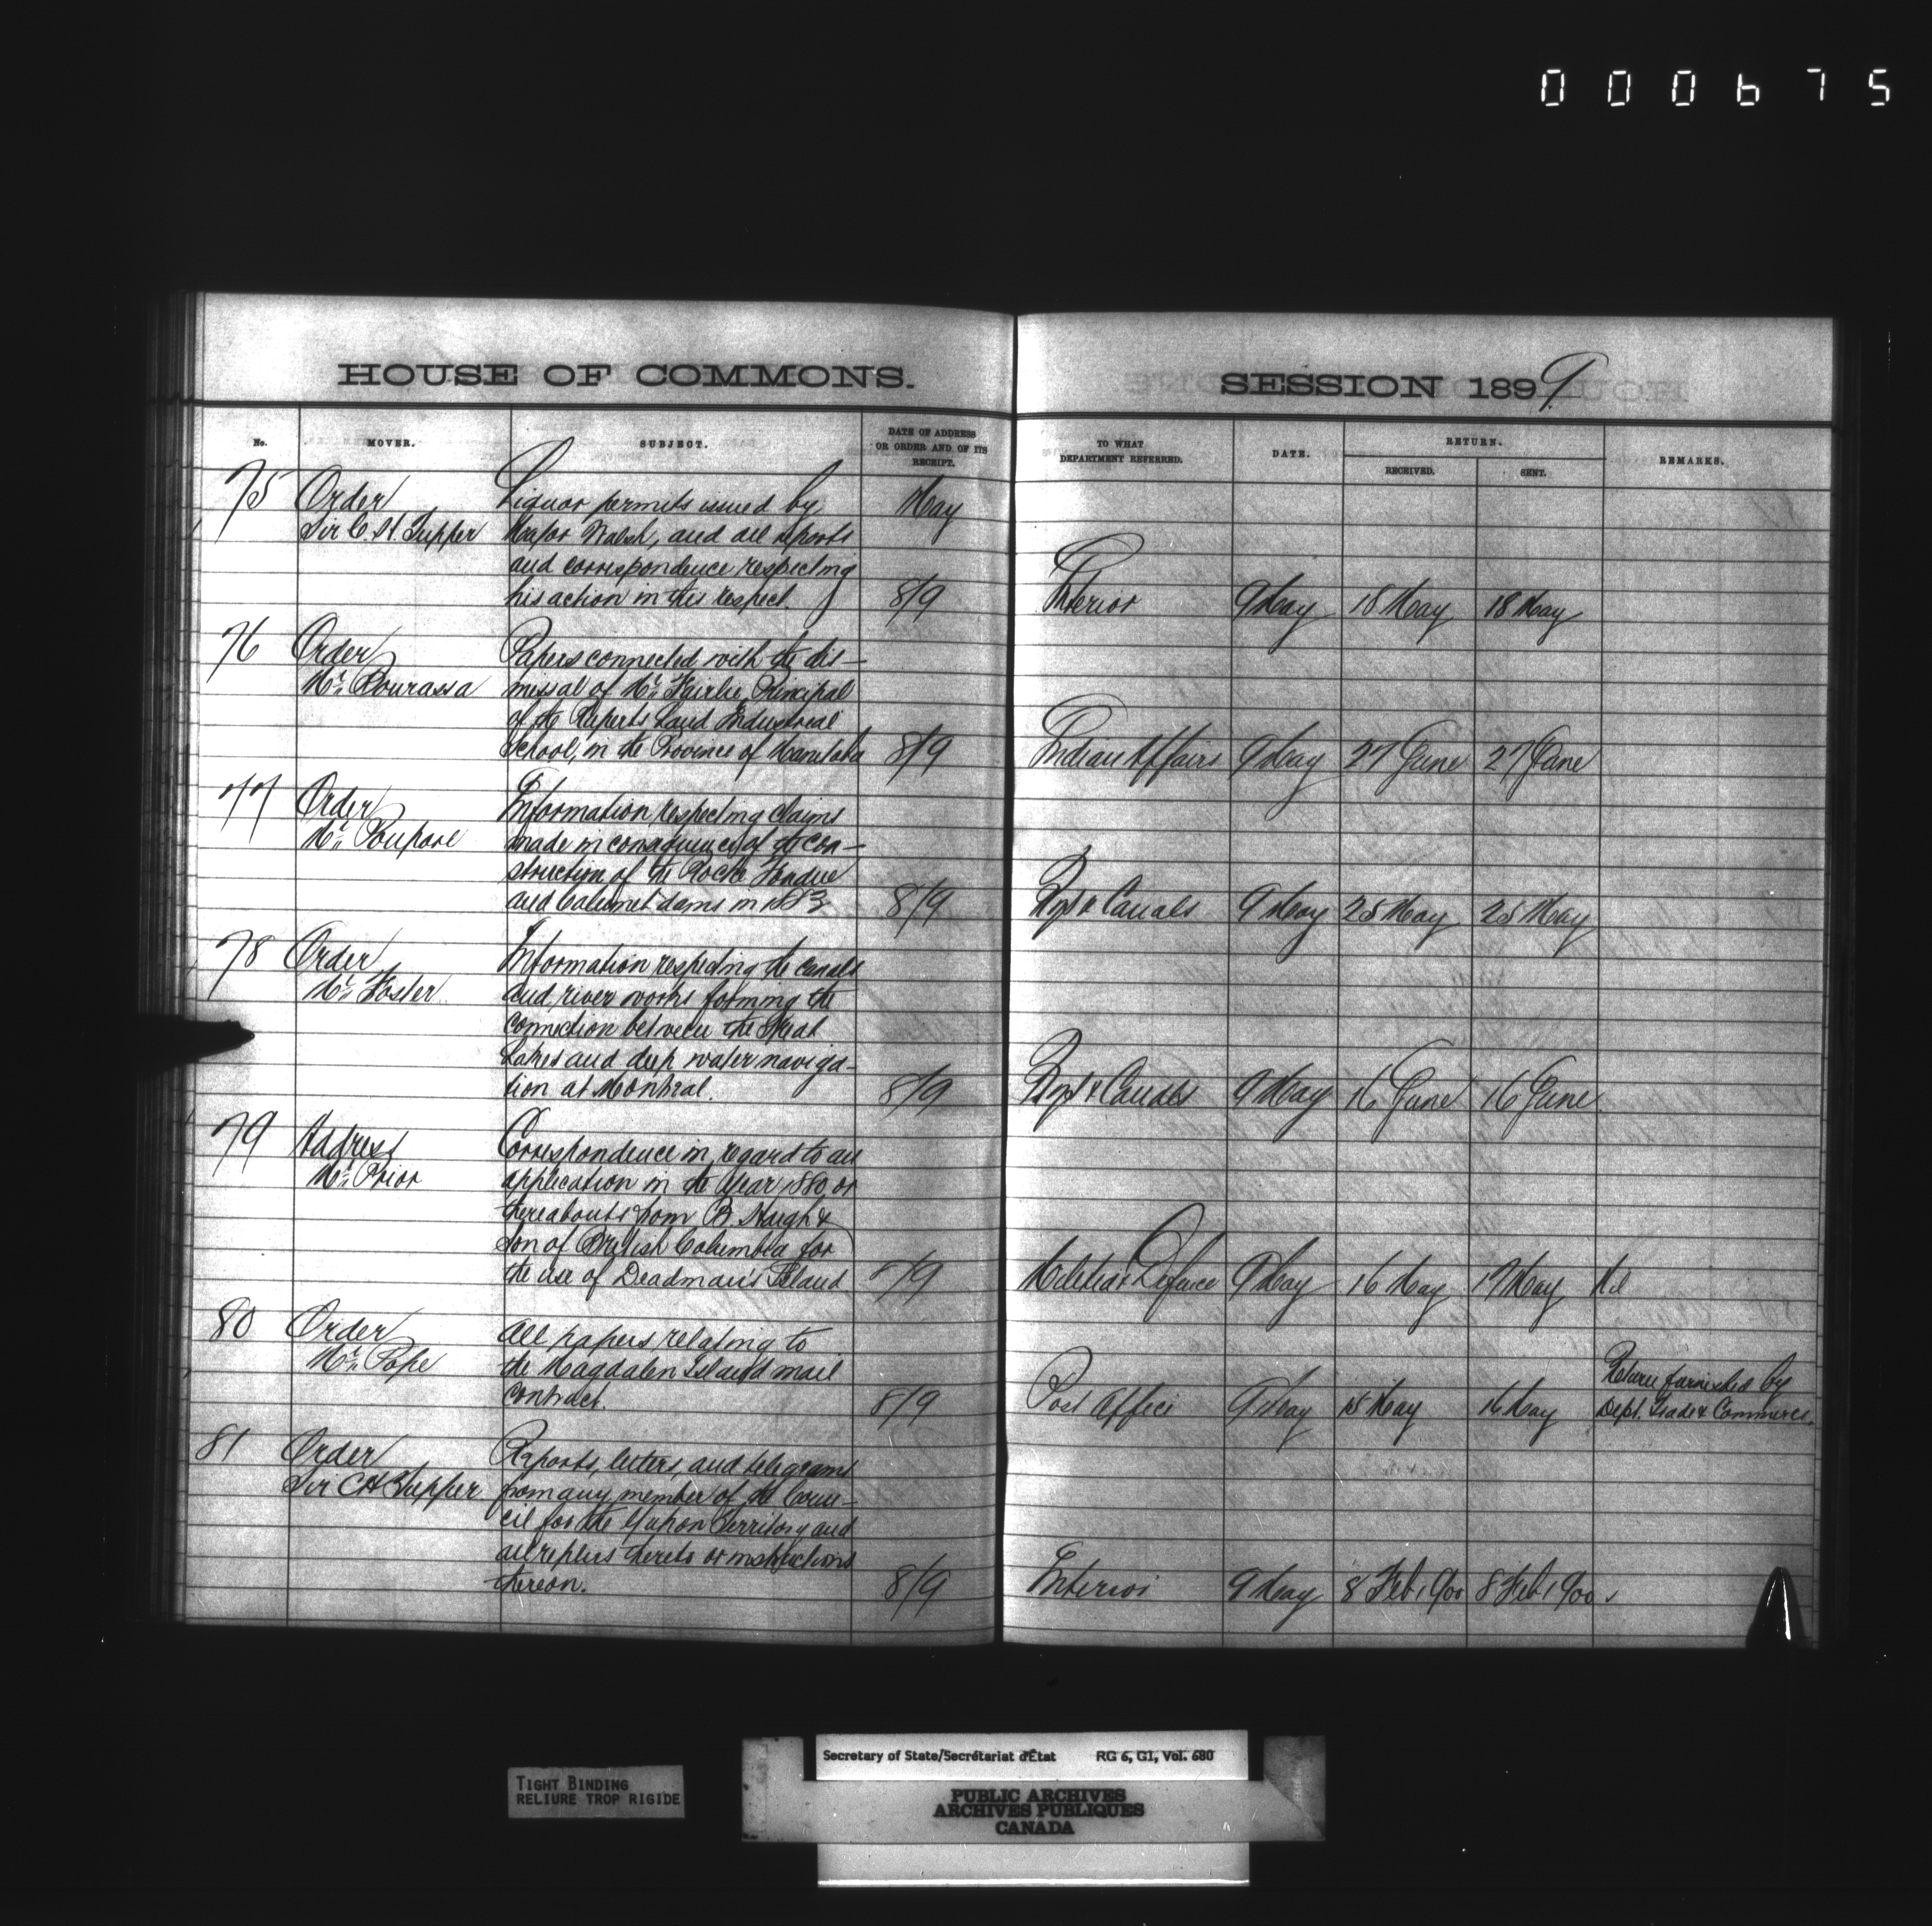 000675
HOUSE OF COMMONS.
No.
MOVER.
SUBJECT.
DATE OF ADDRESS
OR ORDER AND OF ITS
RECEIPT.
75
Order
Sir C. H. Tupper
Liquor permits issued by
Major Walsh, and all reports
and correspondence respecting
his action in this respect.
May
8/9
76
Order
Mr. Bourassa
Papers connected with the dis-
missal of Mr. Fairlie, Principal
of the Ruperts Land Industrial
School, in the Province of Manitoba
8/9
77
Order
Mr. Poupore
Information respecting claims
made in consequence of the con-
struction of the Roche Fendue
and Calumet dams in
8/9
78
Order
Mr. Foster
Information respecting the canals
and river works forming the
connection between the Great
Lakes and deep water naviga-
tion at Montreal.
8/9
79
Address
Mr. Prior
Correspondence in regard to an
application in the year 1880, or
thereabouts from R. Haigh &
Son of British Columbia for
the use of Deadman's Island.
/9
80
Order
Mr. Pope
All papers relating to
the Magdalen Island mail
contract.
8/9
81
Order
Sir C H Tupper
Reports, letters, and telegrams
from any member of the Coun-
cil for the Yukon Territory and
all replies thereto or instructions
thereon.
8/9
SESSION 1899
TO WHAT
DEPARTMENT REFERRED.
DATE.
RETURN.
RECEIVED.
SENT.
REMARKS.
Interior 9 May 18 May 18 May
Indian Affairs 9 May 27 June 27 June
& Canals 9 May 25 May 25 May
& Canals 9 May 16 June 16 June
Militia & Defence 9 May 16 May 17 May Nil
Return furnished by
Post Office 9 May May 16 May Dept. Trade & Commerce.
Interior 9 May 8 Feb 1900 8 Feb 1900
TIGHT BINDING
RELIURE TROP RIGIDE
Secretary of State/Secrétariat d'État RG 6, G1, Vol. 680
PUBLIC ARCHIVES
ARCHIVES PUBLIQUES
CANADA